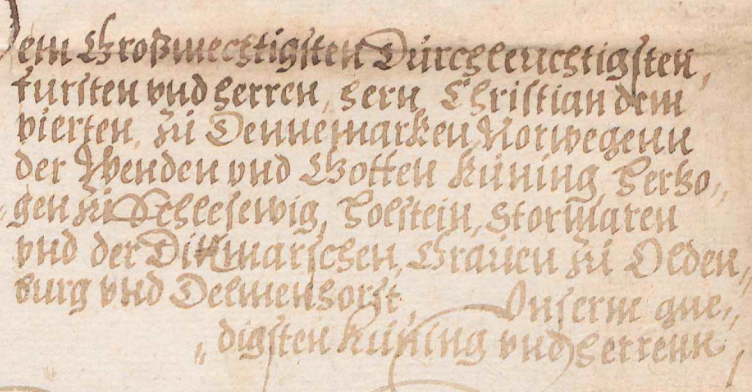 Dem Großmechtigsten Durchleuchtigsten,
fursten vnd herren, hern Christian dem
vierten, zu Dennemarken, Norwegenn
der Wenden vnd Gotten Kuning, hertzo„
gen zu Schleswig, Holstein, Stormaren
vnd der Ditmarschen, Grauen zu Olden„
burg vnd Delmenhorst, Vnserm gne„
„digsten Kuning vnd herrenn